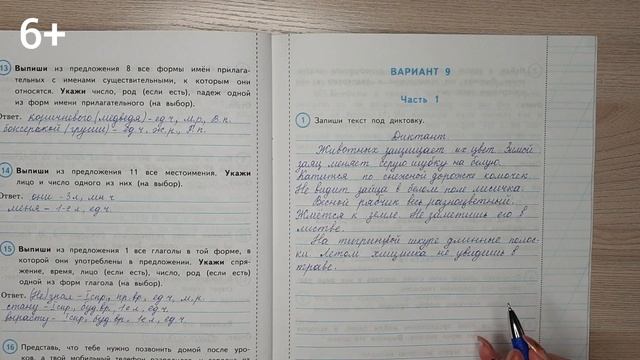 6+
13 Выпиши из предложения 8 все формы имён прилага-
тельных с именами существительными, к которым они
относятся. Укажи число, род (если есть), падеж одной
из форм имени прилагательного (на выбор).
Ответ. коричневого (медведя) - ед.ч., м.р., В.п.
боксёрской (груши) - ед.ч., ж.р.,
14 Выпиши из предложения 11 все местоимения. Укажи
лицо и число одного из них (на выбор).
Ответ. они - 3 л., мн.ч.
меня - 1-е л., ед.ч.
15 Выпиши из предложения 1 все глаголы в той форме, в
которой они употреблены в предложении. Укажи спря-
жение, время, лицо (если есть), число, род (если есть)
одной из форм глагола (на выбор).
Ответ. (Не) знал - I спр., пр.вр., ед.ч., м.р.
стану - I спр., буд.вр., 1 е л., ед.ч.
вырасту - I спр., буд.вр., 1 е л., ед.ч.
16 Представь, что тебе нужно позвонить домой после уро-
ков, а твой мобильный телефон
ВАРИАНТ 9
Часть 1
1 Запиши текст под диктовку.
Диктант.
Животных защищает их цвет. Зимой
заяц меняет серую шубку на белую.
Катится по снежной дорожке комочек.
Не видит зайца в белом поле лисичка.
Весной рябчик весь разноцветный.
Жмётся к земле. Не заметишь его в
листве.
На тигриной шкуре длинные полос-
ки. Летом хищника не увидишь в
траве.